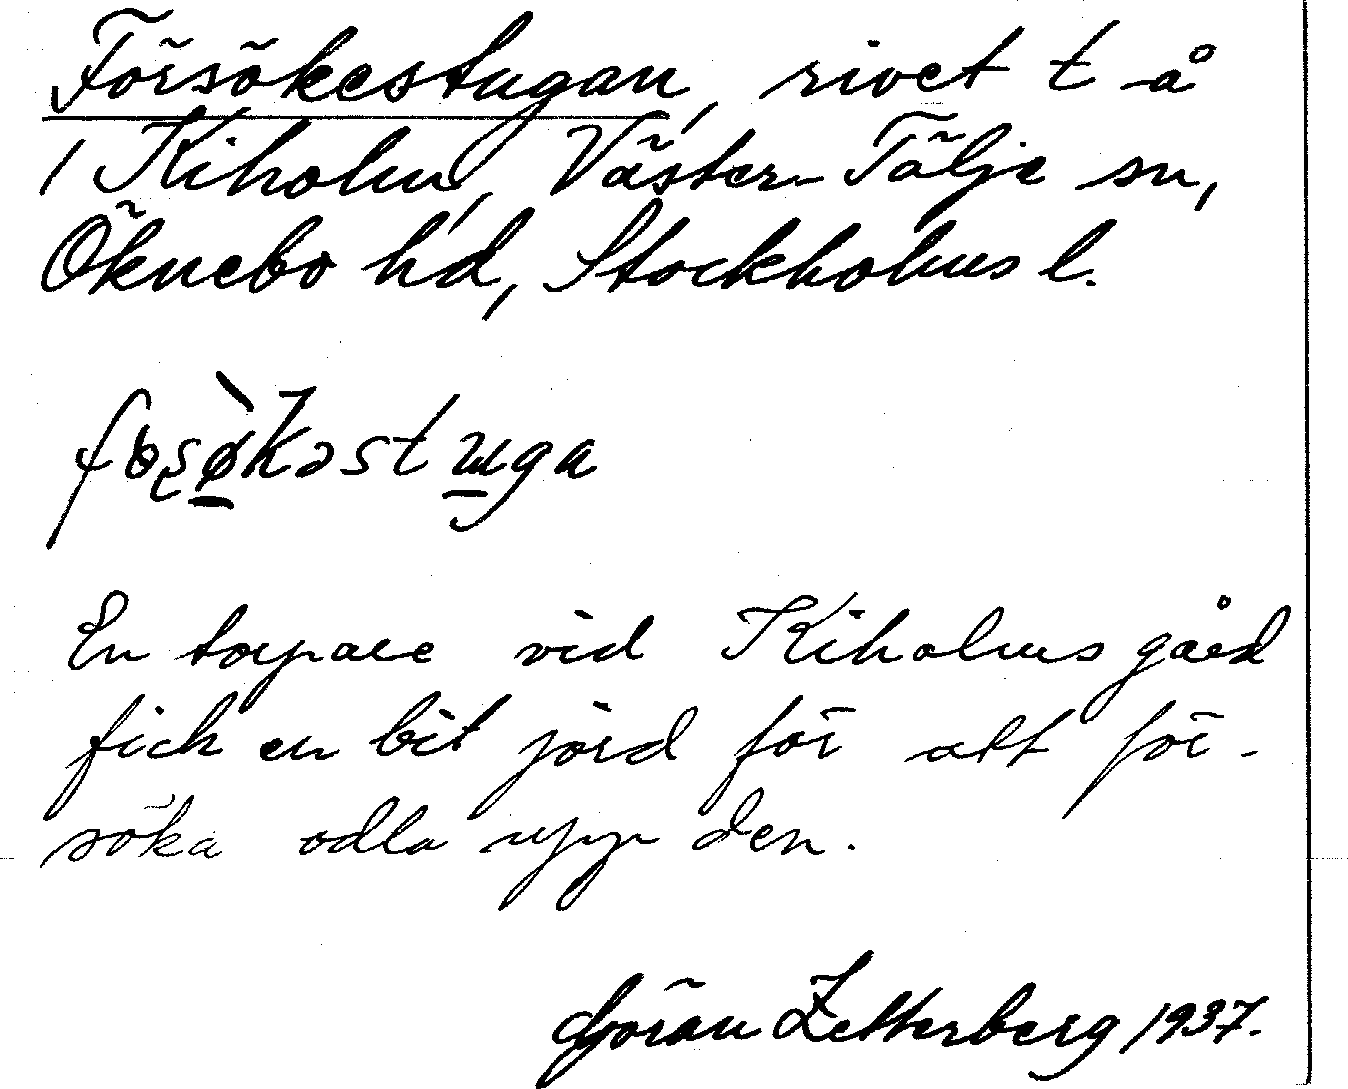 Försökestugan, rivet t å
1 Kiholm, Väster-Tälje sn,
Öknebo hd, Stockholms l.
En torpare vid Kiholms gård
fick en bit jord för att för-
söka odla upp den.
Göran Zetterberg 1937.